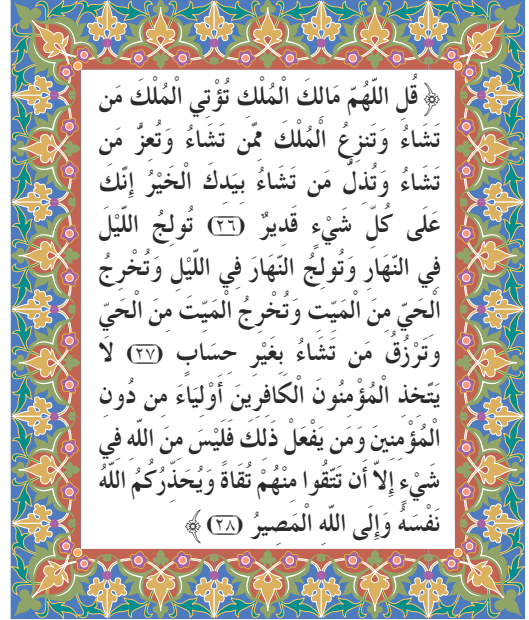 ﴿ قُلِ اللّهُمّ مَالكَ الْمُلْك تُؤْتي الْمُلْكَ مَن
تَشاءُ وَتنزِعُ الْمُلْكَ ممّن تَشَاءُ وَتُعزُّ مَن
تشَاءُ وَتُذلّ مَن تَشَاءُ بيَدكَ الْخَيْرُ إنّكَ
عَلَى كُلّ شَيْءٍ قَديرٌ (٢٦) تُولجُ اللّيْلَ
في النّهَار وَتُولجُ النّهَارَ في اللّيْل وَتُخْرجُ
الْحَيّ منَ الْمَيّت وَتُخْرجُ الْمَيّتَ منَ الْحَيّ
وَتَرْزُقُ مَن تَشَاءُ بغَيْر حسَابٍ (٢٧) لاَ
يَتّخذ الْمُؤْمنُونَ الْكَافرينَ أوْليَاءَ من دُون
الْمُؤْمنينَ وَمَن يَفْعلْ ذَلكَ فَلَيْسَ منَ اللّه في
شَيْءٍ إلاّ أن تَتّقُوا منْهُمْ تُقَاةً وَيُحَذّرُكُمُ اللّهُ
نَفْسَهُ وَإلَى اللّه الْمَصيرُ (٢٨) ﴾